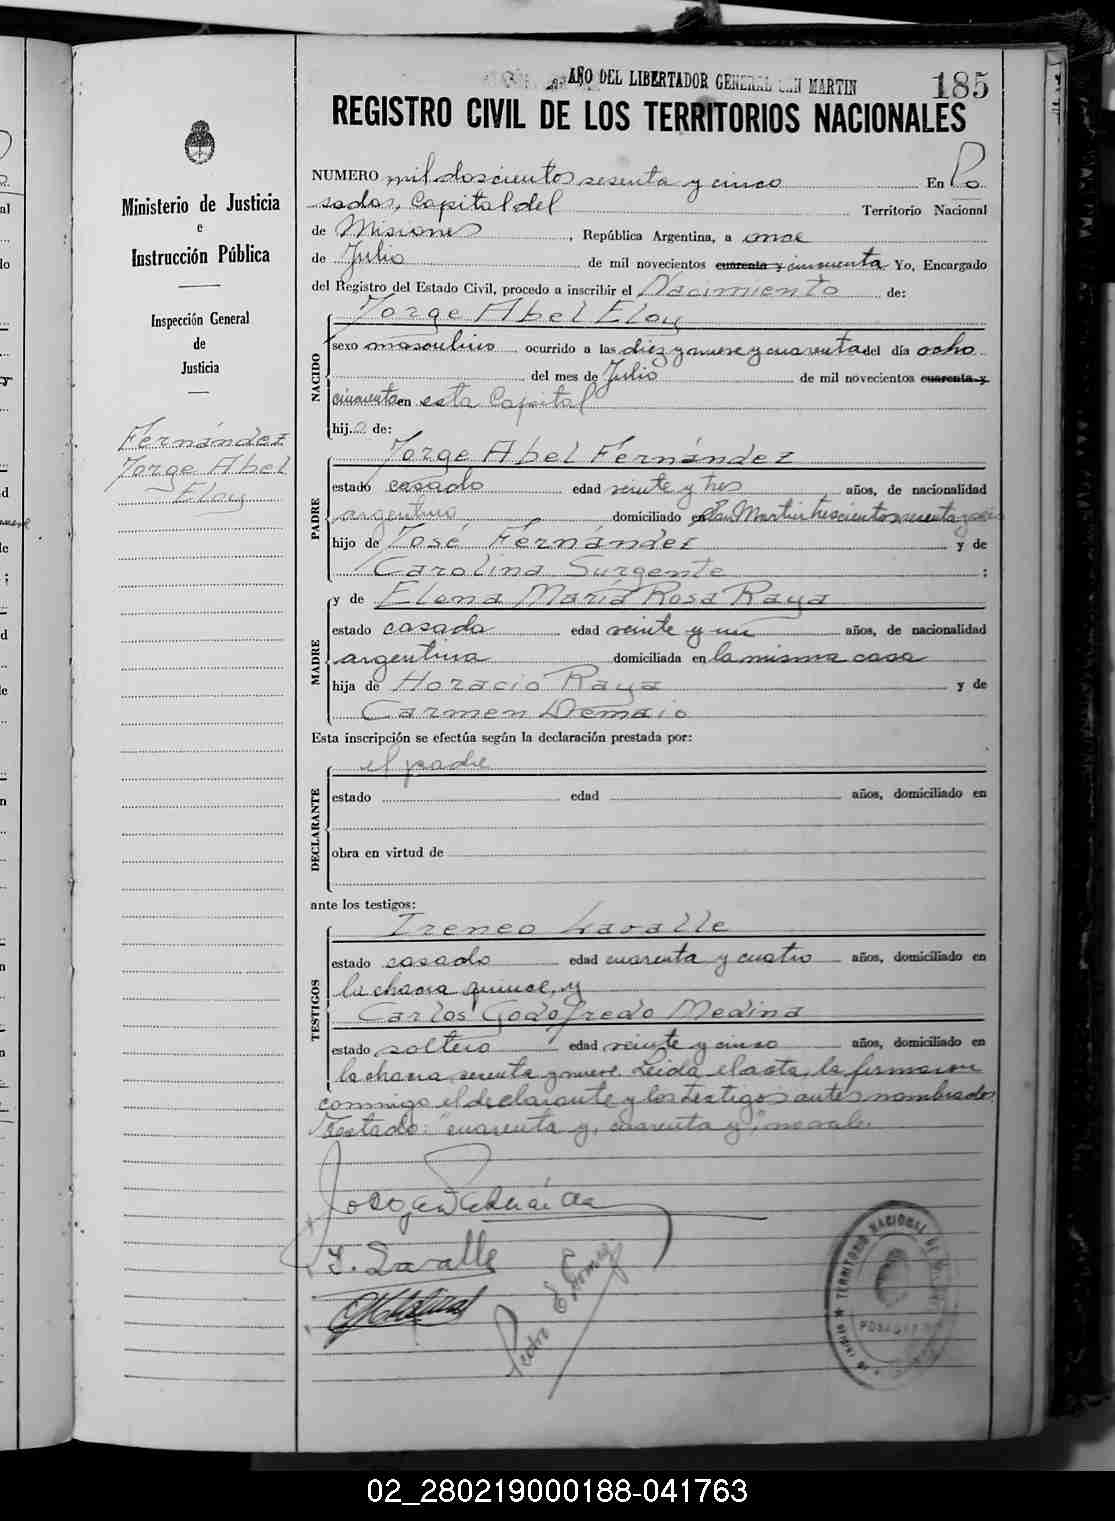 AÑO DEL LIBERTADOR GENERAL SAN MARTIN
185
REGISTRO CIVIL DE LOS TERRITORIOS NACIONALES
Ministerio de Justicia
e
Instrucción Pública
Inspección General
de
Justicia
Fernández
Jorge Abel
Eloy
NUMERO mil doscientos sesenta y cinco En Po
sadas, Capital del Territorio Nacional
de Misiones, República Argentina, a once
de Julio de mil novecientos cuarenta y cincuenta Yo, Encargado
del Registro del Estado Civil, procedo a inscribir el Nacimiento de:
Jorge Abel Eloy
NACIDO
sexo masculino ocurrido a las diez y nueve y cuarenta del día ocho
del mes de Julio de mil novecientos cuarenta y
cincuenta en esta Capital
hijo de:
Jorge Abel Fernández
PADRE
estado casado edad veinte y tres años, de nacionalidad
argentino domiciliado en San Martin trescientos sesenta y seis
hijo de José Fernández y de
Carolina Surgente ;
y de Elena María Rosa Raya
MADRE
estado casada edad veinte y un años, de nacionalidad
argentina domiciliada en la misma casa
hija de Horacio Raya y de
Carmen Demaio
Esta inscripción se efectúa según la declaración prestada por:
el padre
DECLARANTE
estado edad años, domiciliado en
obra en virtud de
ante los testigos:
Ireneo Lavalle
TESTIGOS
estado casado edad cuarenta y cuatro años, domiciliado en
la chacra quince, y
Carlos Godofredo Medina
estado soltero edad veinte y cinco años, domiciliado en
la chacra sesenta y nueve. Leida el acta, la firmaron
conmigo el declarante y los testigos antes nombrados.
Testado: "cuarenta y, cuarenta y", no vale.
I. Lavalle
Pedro E. Gomez
TERRITORIO NACIONAL DE
POSADAS
02_280219000188-041763